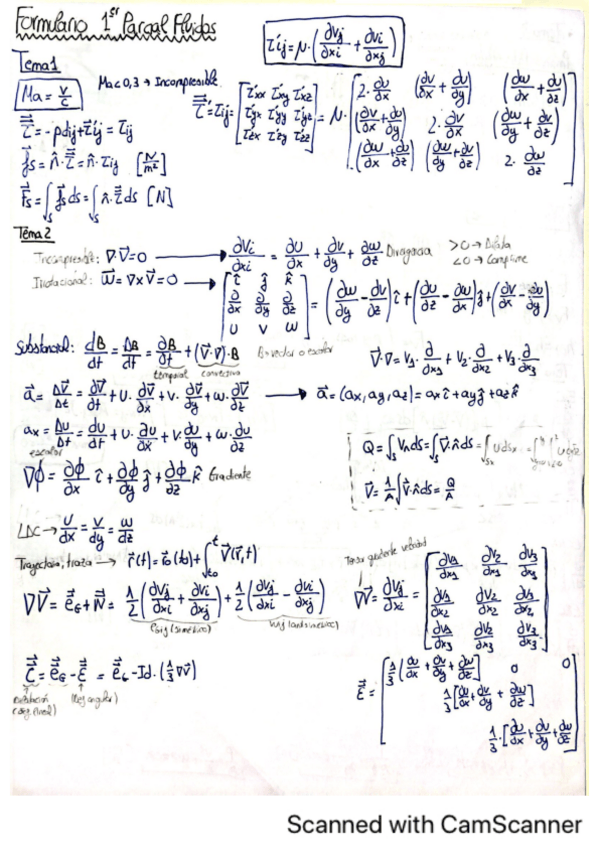 Formulario 1er Parcial Fluidos
τij = μ·(∂Vj/∂xi + ∂Vi/∂xj)
Tema 1
Ma = V/c
Ma < 0,3 → Incompresible
τ' = τ'ij = [τ'xx τ'xy τ'xz; τ'yx τ'yy τ'yz; τ'zx τ'zy τ'zz] = μ· [2·∂u/∂x (∂v/∂x + ∂u/∂y) (∂w/∂x + ∂u/∂z); (∂v/∂x + ∂u/∂y) 2·∂v/∂y (∂w/∂y + ∂v/∂z); (∂w/∂x + ∂u/∂z) (∂w/∂y + ∂v/∂z) 2·∂w/∂z]
τ = -pdij + τ'ij = τij
fs = n̂·τ = n̂·τij [N/m²]
Fs = ∫s fs ds = ∫s n̂·τ ds [N]
Tema 2
Incompresible: ∇·V = 0 → ∂Vi/∂xi = ∂u/∂x + ∂v/∂y + ∂w/∂z Divergencia
>0 → Dilata
<0 → Comprime
Irrotacional: ω = ∇×V = 0 → [î ĵ k̂; ∂/∂x ∂/∂y ∂/∂z; u v w] = (∂w/∂y - ∂v/∂z) î + (∂u/∂z - ∂w/∂x) ĵ + (∂v/∂x - ∂u/∂y)
Substancial: dB/dt = DB/dt = ∂B/∂t + (V·∇)·B B = vector o escalar
temporal convectiva
V·∇ = V1·∂/∂x1 + V2·∂/∂x2 + V3·∂/∂x3
a = ΔV/Δt = ∂V/∂t + u·∂V/∂x + v·∂V/∂y + w·∂V/∂z → a = (ax, ay, az) = ax î + ay ĵ + az k̂
ax = Du/Dt = du/dt + u·∂u/∂x + v·∂u/∂y + w·∂u/∂z
escalar
Q = ∫s Vn ds = ∫s V·n̂ ds = ∫ u ds
∇φ = ∂φ/∂x î + ∂φ/∂y ĵ + ∂φ/∂z k̂ Gradiente
V = 1/A ∫ V·n̂ ds = Q/A
LDC → u/dx = v/dy = w/dz
Trayectoria, traza → r(t) = r0(t0) + ∫t0^t V(r,t)
Tensor gradiente velocidad
∇V = eG + W = 1/2 (∂Vj/∂xi + ∂Vi/∂xj) + 1/2 (∂Vj/∂xi - ∂Vi/∂xj)
eGij (simétrico) Wij (antisimétrico)
∇V = ∂Vj/∂xi = [∂V1/∂x1 ∂V2/∂x1 ∂V3/∂x1; ∂V1/∂x2 ∂V2/∂x2 ∂V3/∂x2; ∂V1/∂x3 ∂V2/∂x3 ∂V3/∂x3]
ε = eG - ε = eG - Id·(1/3 ∇V)
(def. lineal) (def. angular)
ε = [1/3 (∂u/∂x + ∂v/∂y + ∂w/∂z] 0 0
1/3 [∂u/∂x + ∂v/∂y + ∂w/∂z]
1/3·[∂u/∂x + ∂v/∂y + ∂w/∂z]
Scanned with CamScanner